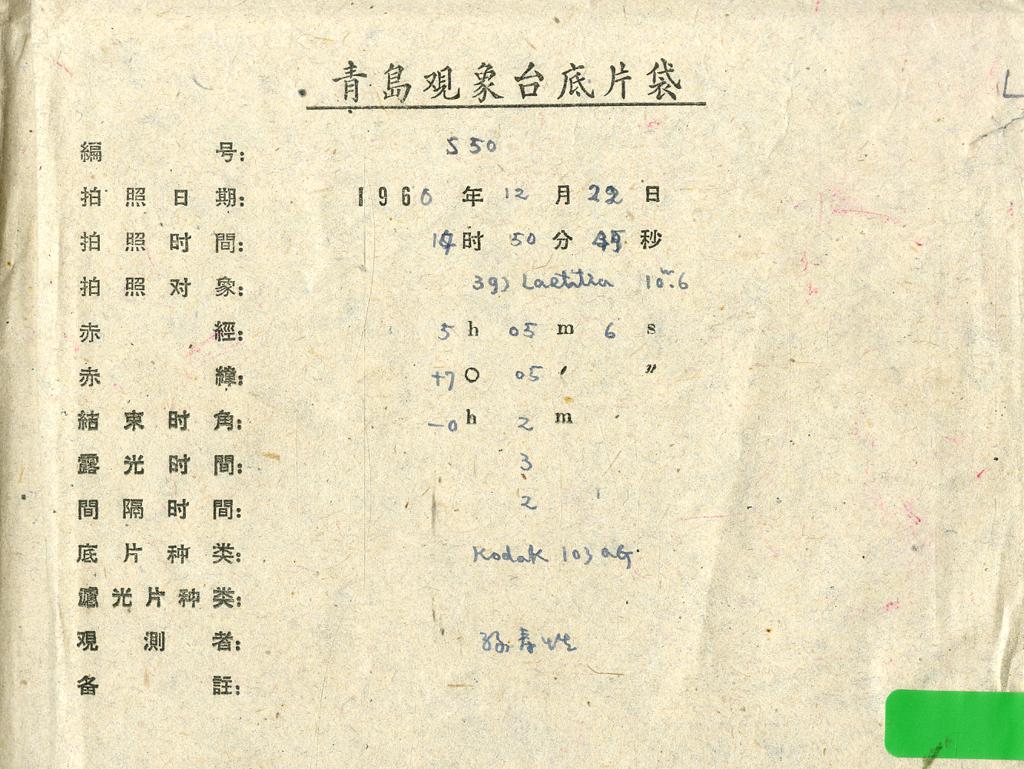 青島观象台底片袋
編号: S 50
拍照日期: 1960年12月22日
拍照时間: 时50分 秒
拍照对象: 39) Laetitia 10ᵐ.6
赤經: 5h 05m 6s
赤緯: +7° 05′ ″
結束时角: -0h 2m
露光时間: 3
間隔时間: 2
底片种类: Kodak 103 aG
濾光片种类:
观測者: 孙寿
备註: